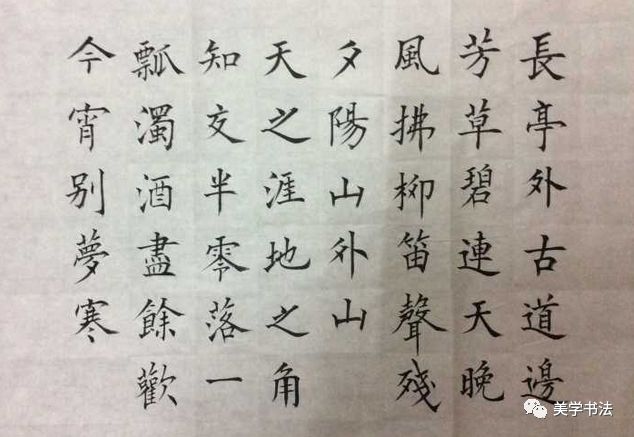 長亭外古道邊
芳草碧連天晚
風拂柳笛聲殘
夕陽山外山
天之涯地之角
知交半零落一
瓢濁酒盡餘歡
今宵别夢寒
美学书法